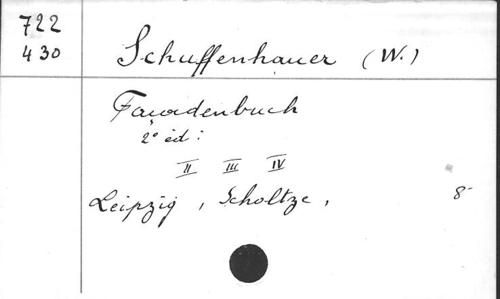 722
430
Schuffenhauer (W.)
Façadenbuch
2° éd :
II III IV
Leipzig , Scholtze , 8-